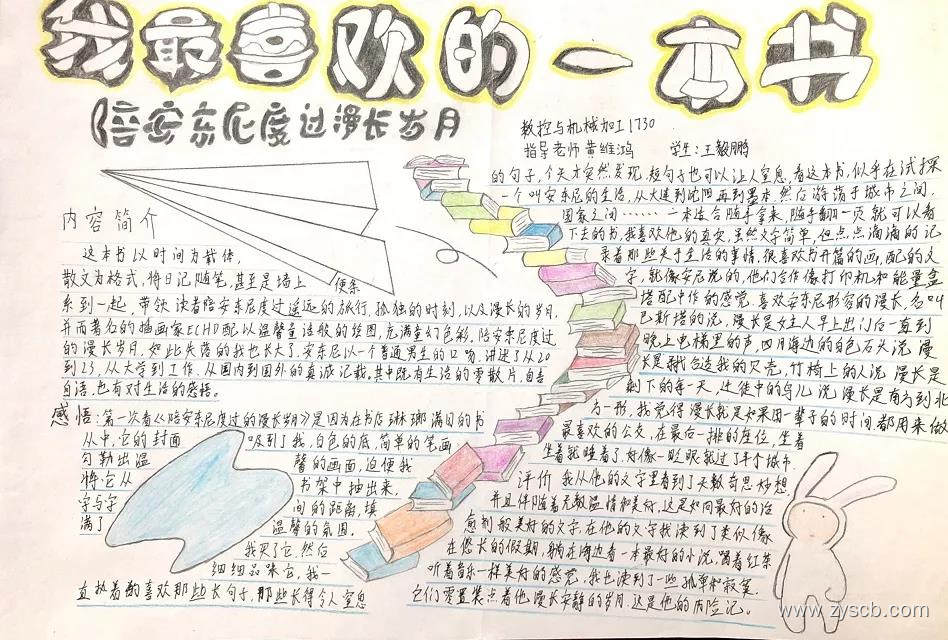 我最喜欢的一本书
陪安东尼度过漫长岁月
数控与机械加工1730
指导老师 黄维鸿 学生:王毅鹏
内容简介
这本书以时间为载体,
散文为格式,将日记随笔,甚至是墙上便条
系到一起,带领读者陪安东尼度过遥远的旅行,孤独的时刻,以及漫长的岁月,
并而著名的插画家ECHO配以温馨宣读般的绘图,充满童幻色彩,陪安东尼度过
的漫长岁月,如此失落的我也长大了,安东尼以一个普通男生的口吻,讲述了从20
到23,从大学到工作,从国内到国外的真诚记载,其中既有生活的零散片,自言
自语,也有对生活的感悟。
感悟:第一次看《陪安东尼度过的漫长岁月》是因为在书店琳琅满目的书
从中,它的封面吸引了我,白色的底,简单的笔画
勾勒出温馨的画面,迫使我
将它从书架中抽出来,
字与字间的距离,填
满了温馨的氛围。
我买了它,然后
细细品味它,我一
直执着的喜欢那些长句子,那些长得令人窒息
的句子,今天才突然发现,短句子也可以让人窒息,看这本书,似乎在试探
一个叫安东尼的生活,从大连到沈阳再到墨本,然后游荡于城市之间,
国家之间……一本适合随手拿来,随手翻一页就可以看
下去的书,我喜欢他的真实,虽然文字简单,但点点滴滴的记
录着那些关于生活的事情,很喜欢书开篇的画,配的文
字,就像安尼说的,他们合作像打印机和能量盒
搭配中作的感觉,喜欢安东尼形容的漫长,名叫
巴斯塔的说,漫长是女主人早上出门后一直到
晚上电梯里的声,四月海边的白色石头说,漫
长是我合适我的贝壳,竹椅上的人说,漫长是
剩下的每一天,迁徙中的鸟儿说,漫长是南方到北
方一形,我觉得漫长就是如果困一辈子的时间都用来做
最喜欢的公交,在最后一排的座位,坐着
坐着就睡着了,好像一眨眼就过了半个城市.
评价 我从他的文字里看到了天数奇思妙想
并且伴随着无数温情和美好,这是如同最好的治
愈剂般美好的文字,在他的文字我读到了类似像
在悠长的假期,躺在海边看一本最好的小说,喝着红茶
听着音乐一样美好的感觉,我也读到了一些孤单和寂寞.
它们零星装点着他漫长安静的岁月.这是他的内险记。
www.zyscb.com